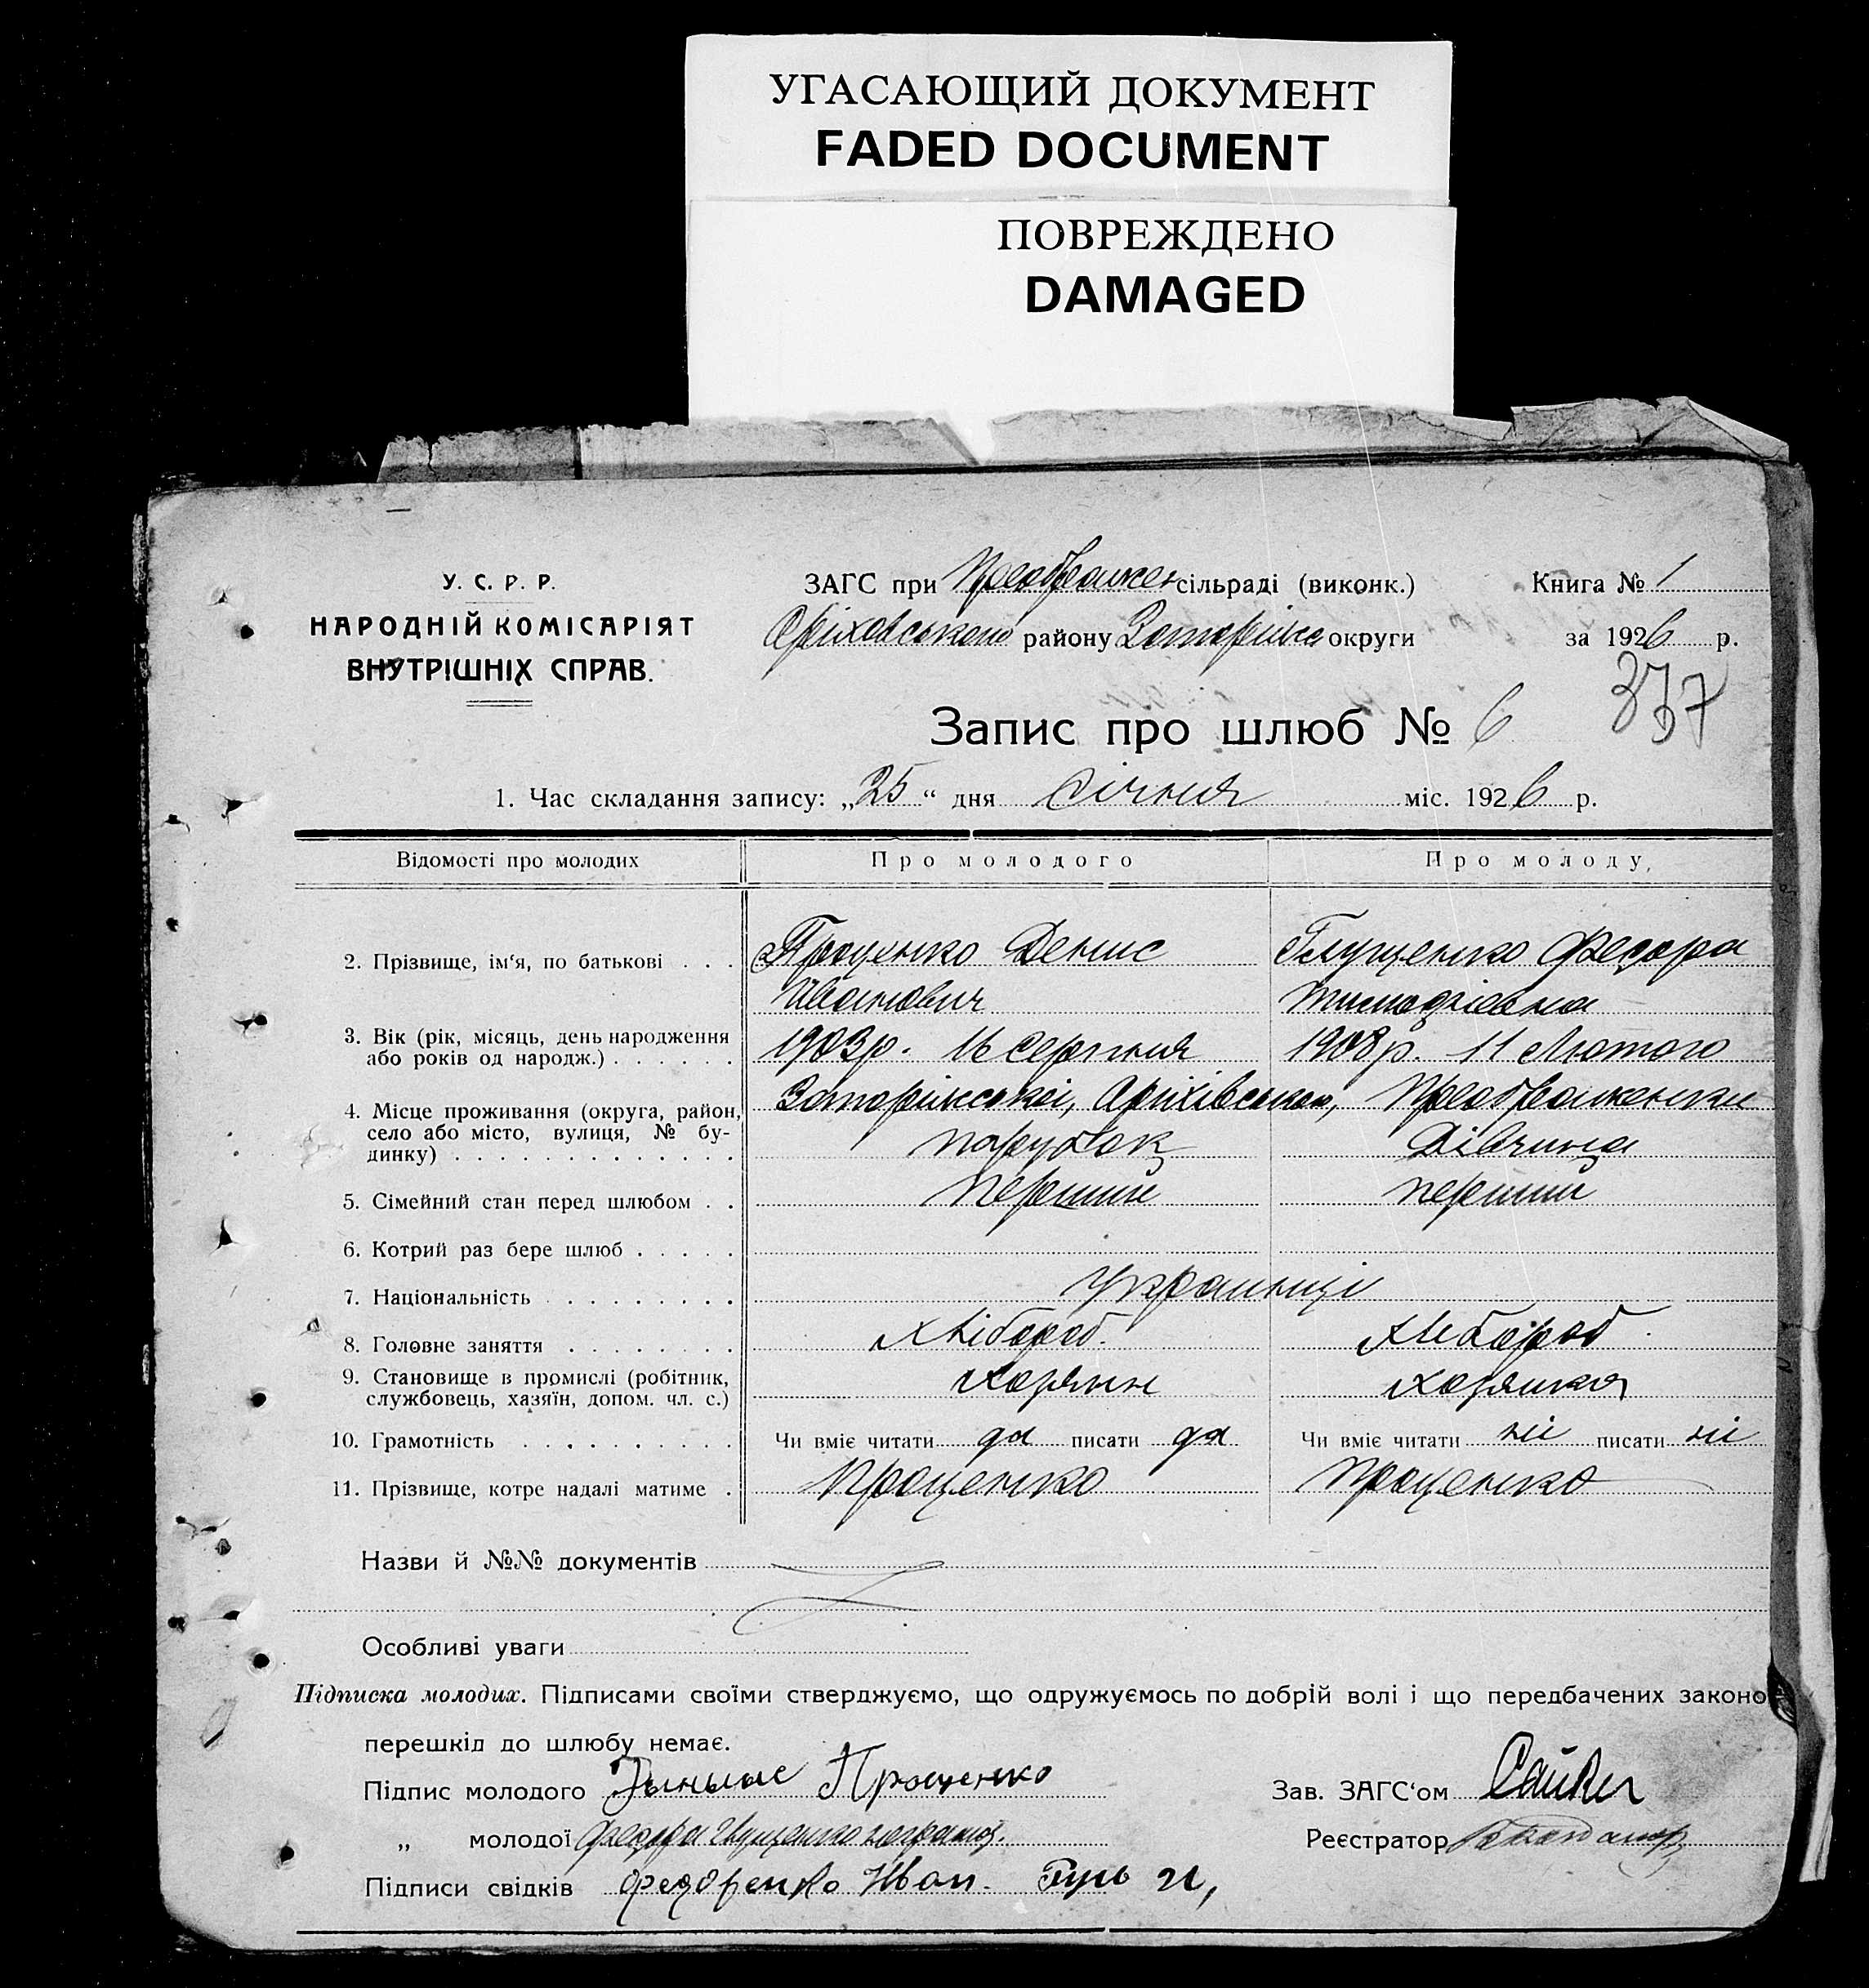 УГАСАЮЩИЙ ДОКУМЕНТ
FADED DOCUMENT
ПОВРЕЖДЕНО
DAMAGED
У. С. Р. Р.
НАРОДНІЙ КОМІСАРІЯТ
ВНУТРІШНІХ СПРАВ.
ЗАГС при Преображен сільраді (виконк.)
Оріховського району Запоріжс округи
Книга № 1
за 1926 р.
337
Запис про шлюб № 6
1. Час складання запису: „25“ дня січня міс. 1926 р.
Відомості про молодих Про молодого Про молоду,
2. Прізвище, ім‘я, по батькові . . . Проценко Денис Глущенко Федора
Иванович
3. Вік (рік, місяць, день народження
або років од народж.) . . . . . . 1903р. 16 серпня 1908р. 11 Лютого
4. Місце проживання (округа, район, Запоріжської, Оріхівською, Преображенки
село або місто, вулиця, № бу-
динку) . . . . . . . . . . . . . парубок Дівчина
5. Сімейний стан перед шлюбом . . перший перший
6. Котрий раз бере шлюб . . . . .
7. Національність . . . . . . . . украинці
8. Головне заняття . . . . . . . Хлібороб. Хлібороб.
9. Становище в промислі (робітник,
службовець, хазяїн, допом. чл. с.) хозяин хозяйка
10. Грамотність . . . . . . . . . Чи вміє читати да писати да Чи вміє читати ні писати ні
11. Прізвище, котре надалі матиме . Проценко Проценко
Назви й №№ документів
Особливі уваги
Підписка молодих. Підписами своїми стверджуємо, що одружуємось по добрій волі і що передбачених законо
перешкід до шлюбу немає.
Підпис молодого Проценко Зав. ЗАГС‘ом
„ молодої Федора Глущенко Реєстратор
Підписи свідків Федоренко Иван. Гуль